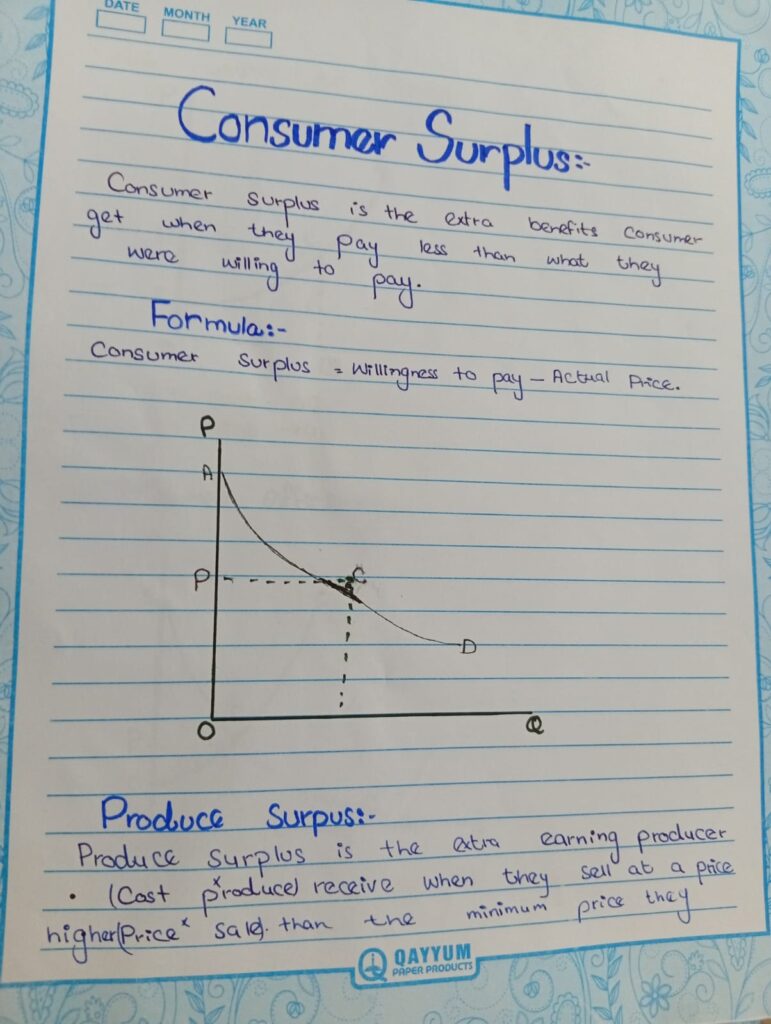 DATE MONTH YEAR
Consumer Surplus:-
Consumer surplus is the extra benefits consumer
get when they pay less than what they
were willing to pay.
Formula:-
Consumer surplus = Willingness to pay - Actual Price.
P
A
P C
D
O Q
Produce Surpus:-
Produce surplus is the extra earning producer
• (Cost x produce) receive when they sell at a price
higher(Price x sale). than the minimum price they
QAYYUM
PAPER PRODUCTS